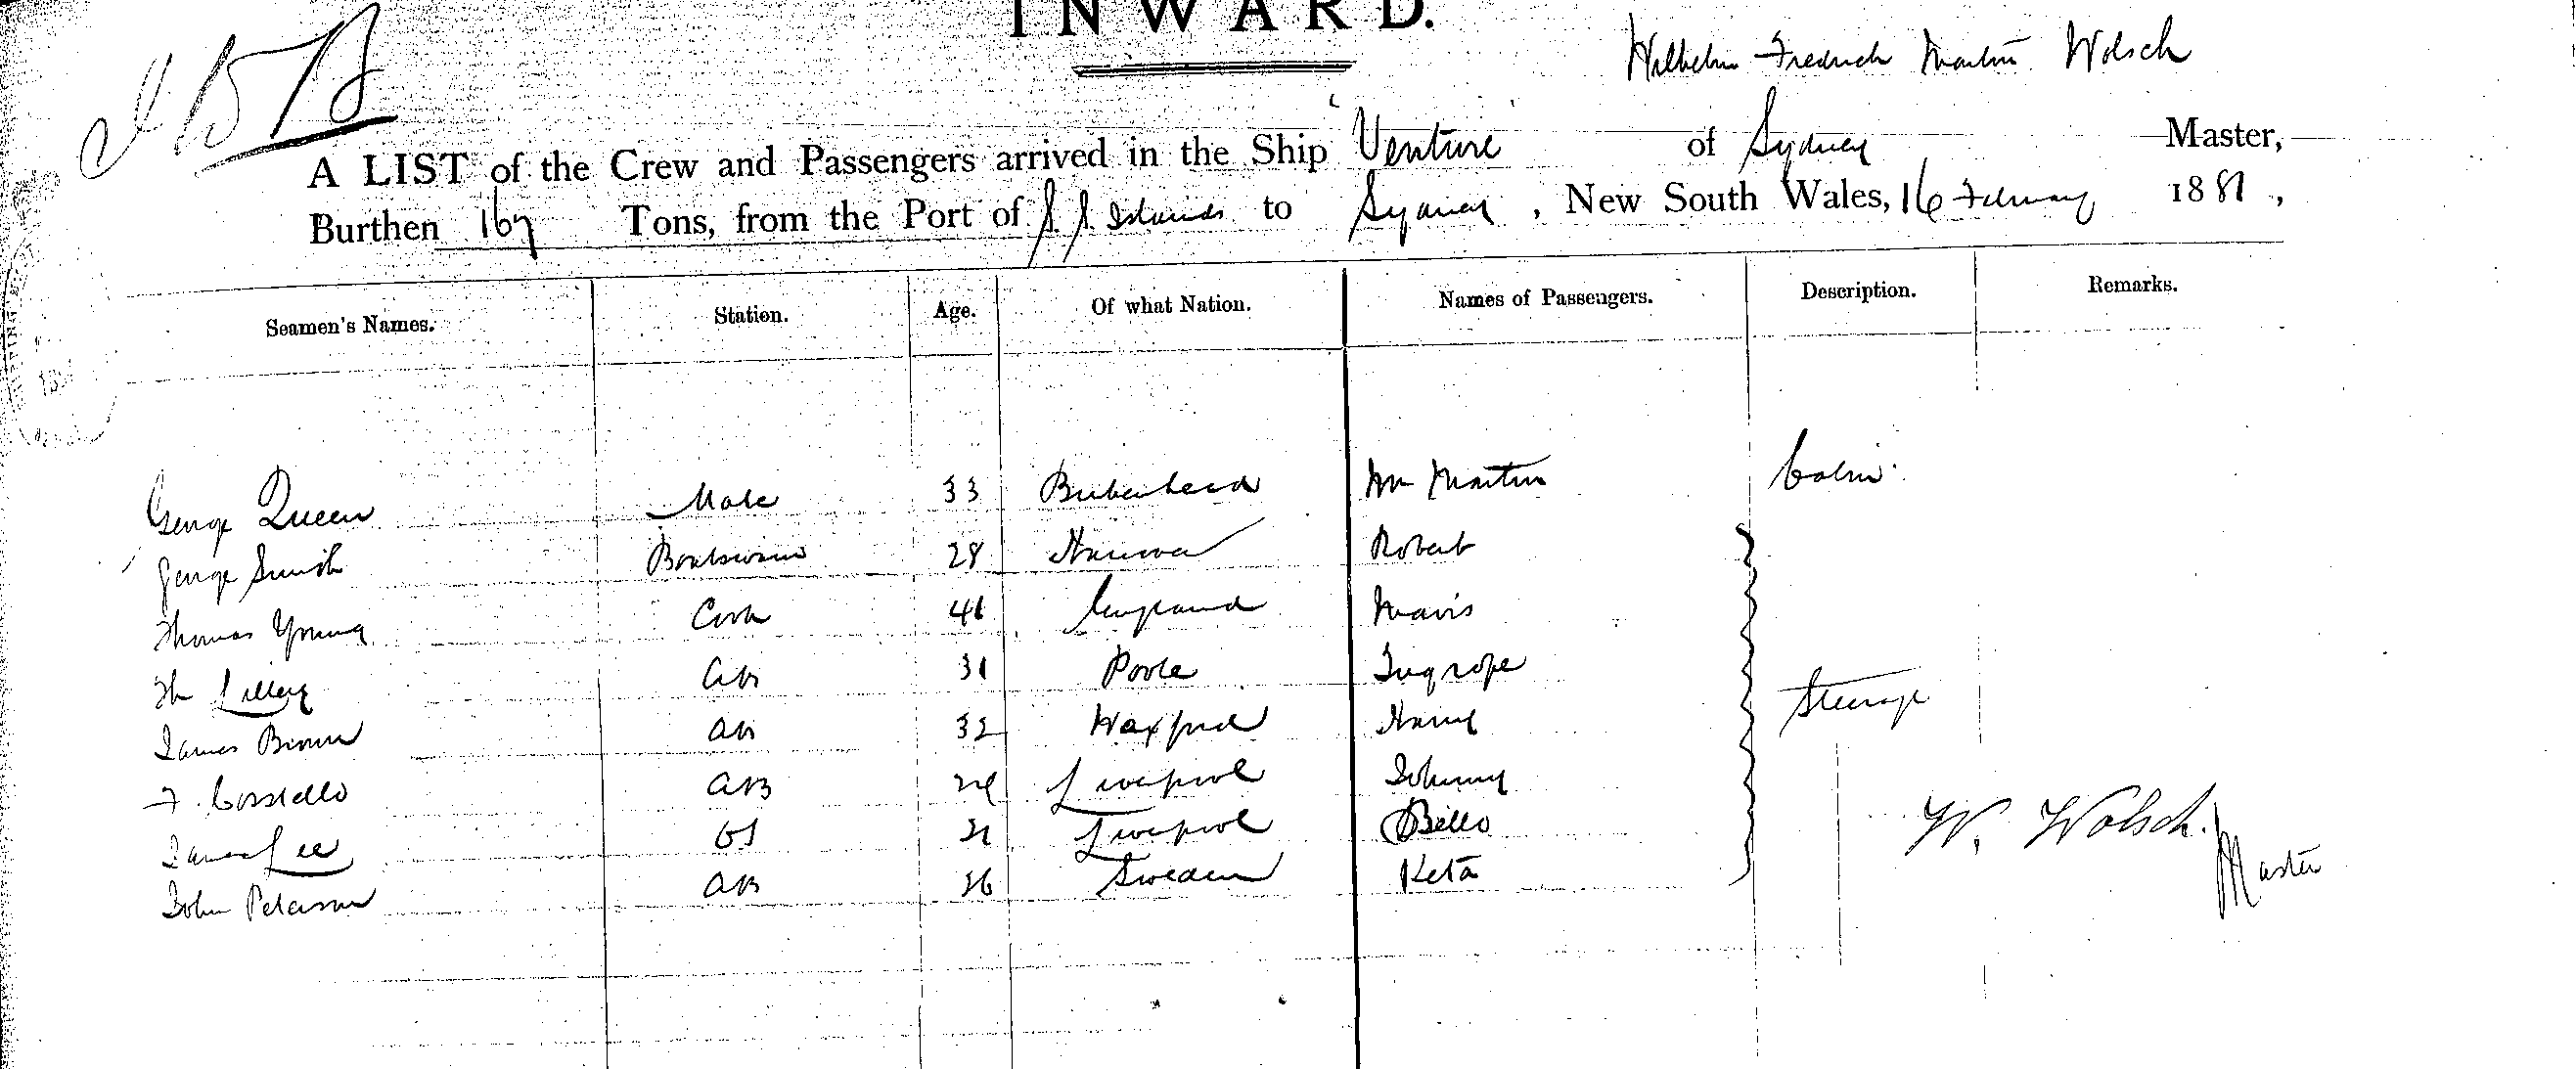 INWARD.
Wilhelm Fredrich Martin Wolsch
A LIST of the Crew and Passengers arrived in the Ship 'Venture' of Sydney Master,
Burthen 167 Tons, from the Port of Islands to Sydney, New South Wales, 16 February 1881,
Seamen's Names. Station. Age. Of what Nation. Names of Passengers. Description. Remarks.
George Queen Mate 33 Birkenhead Mr Martin Cabin
George Smith Boatswain 28 Hanover Robert
Thomas Young Cook 41 England Mavis
Th Lilley AB 31 Poole Tugrope
James Brown AB 32 Waxford Harry Steerage
F. Costello AB Liverpool Johnny
James Lee OS 21 Liverpool Billo
John Peterson AB 36 Sweden Keta
W. Wolsch.
Master